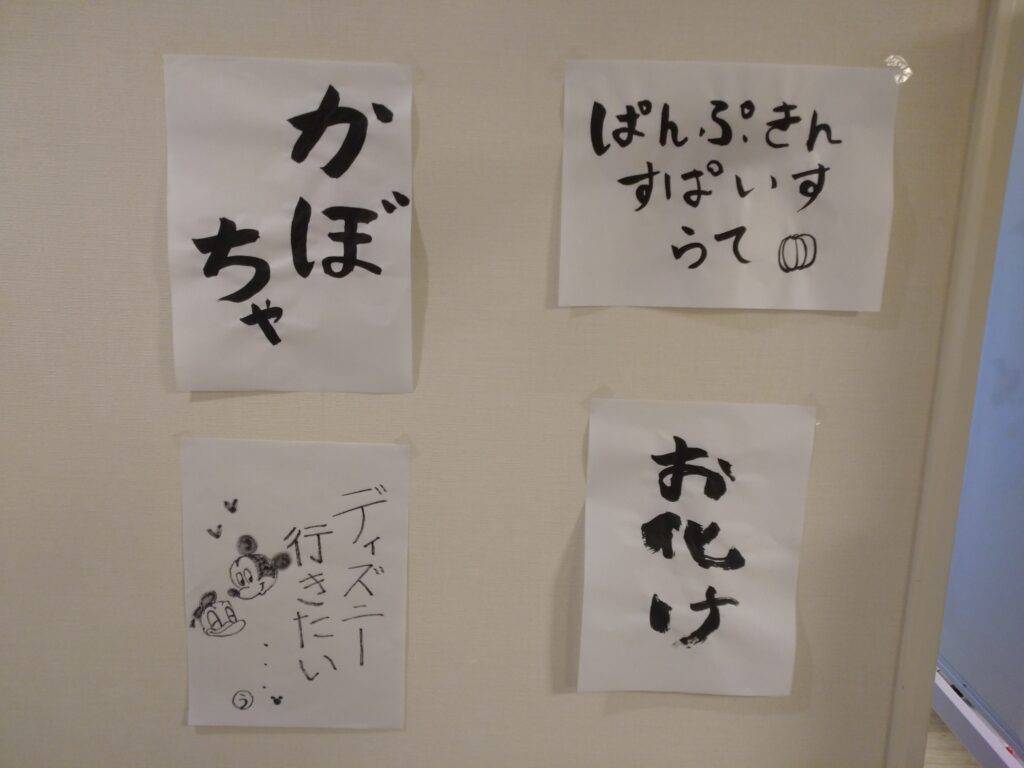 かぼ
ちゃ
ぱんぷきん
すぱいす
らて
ディズニー
行きたい
う
お化け